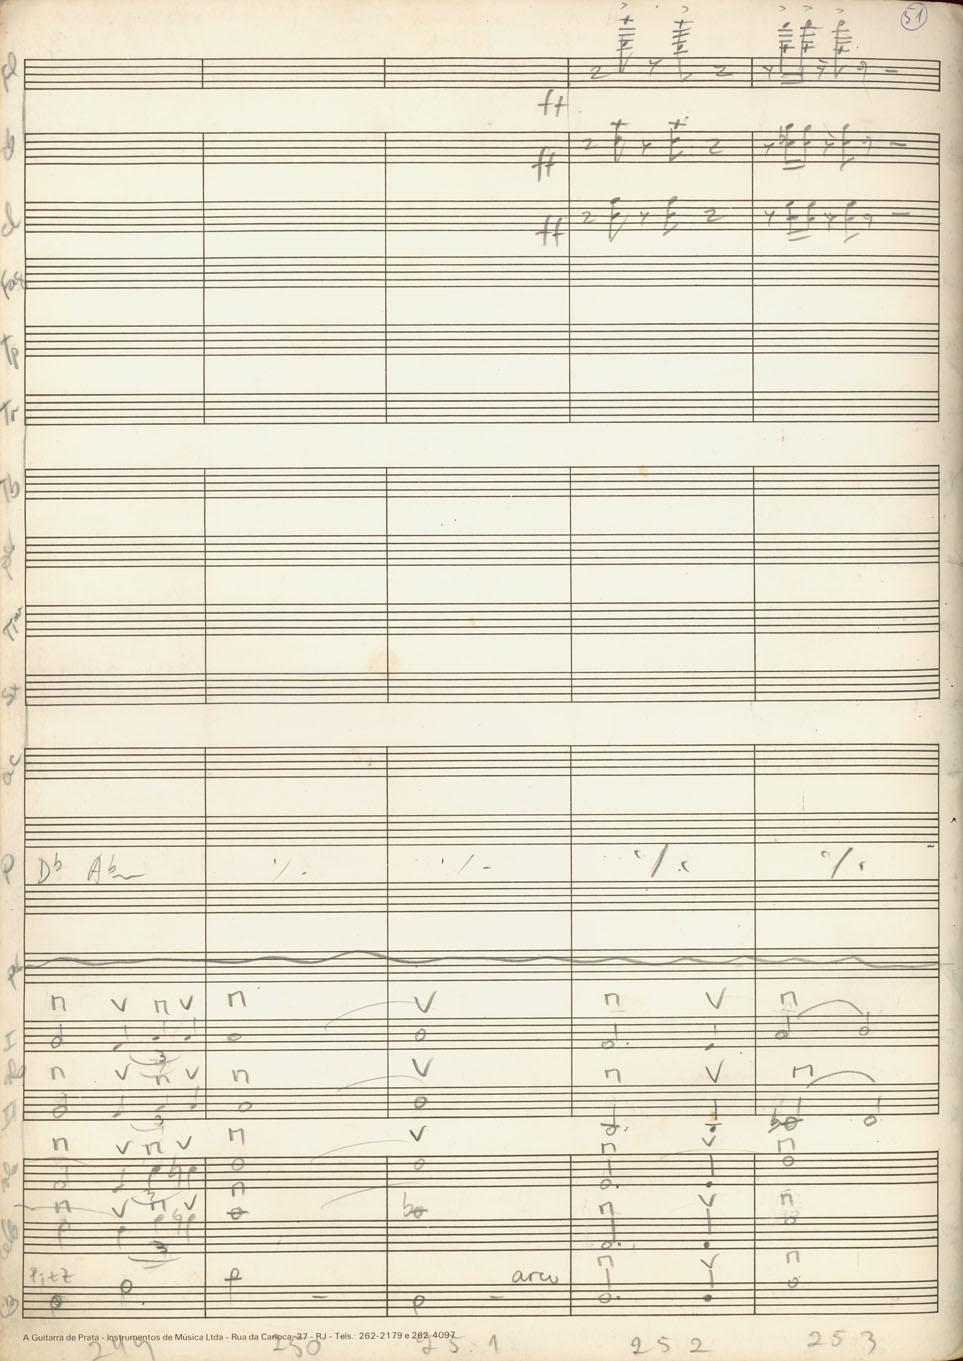 51
fl
ff
ob
ff
cl
ff
fag
tp
Tr
Tb
St
ac
P
Db Ab
I
3
II
3
3
3
cello
Pizz arco
A Guitarra de Prata - Instrumentos de Música Ltda - Rua da Carioca, 37 - RJ - Tels.: 262-2179 e 262-4097
249 250 251 252 253